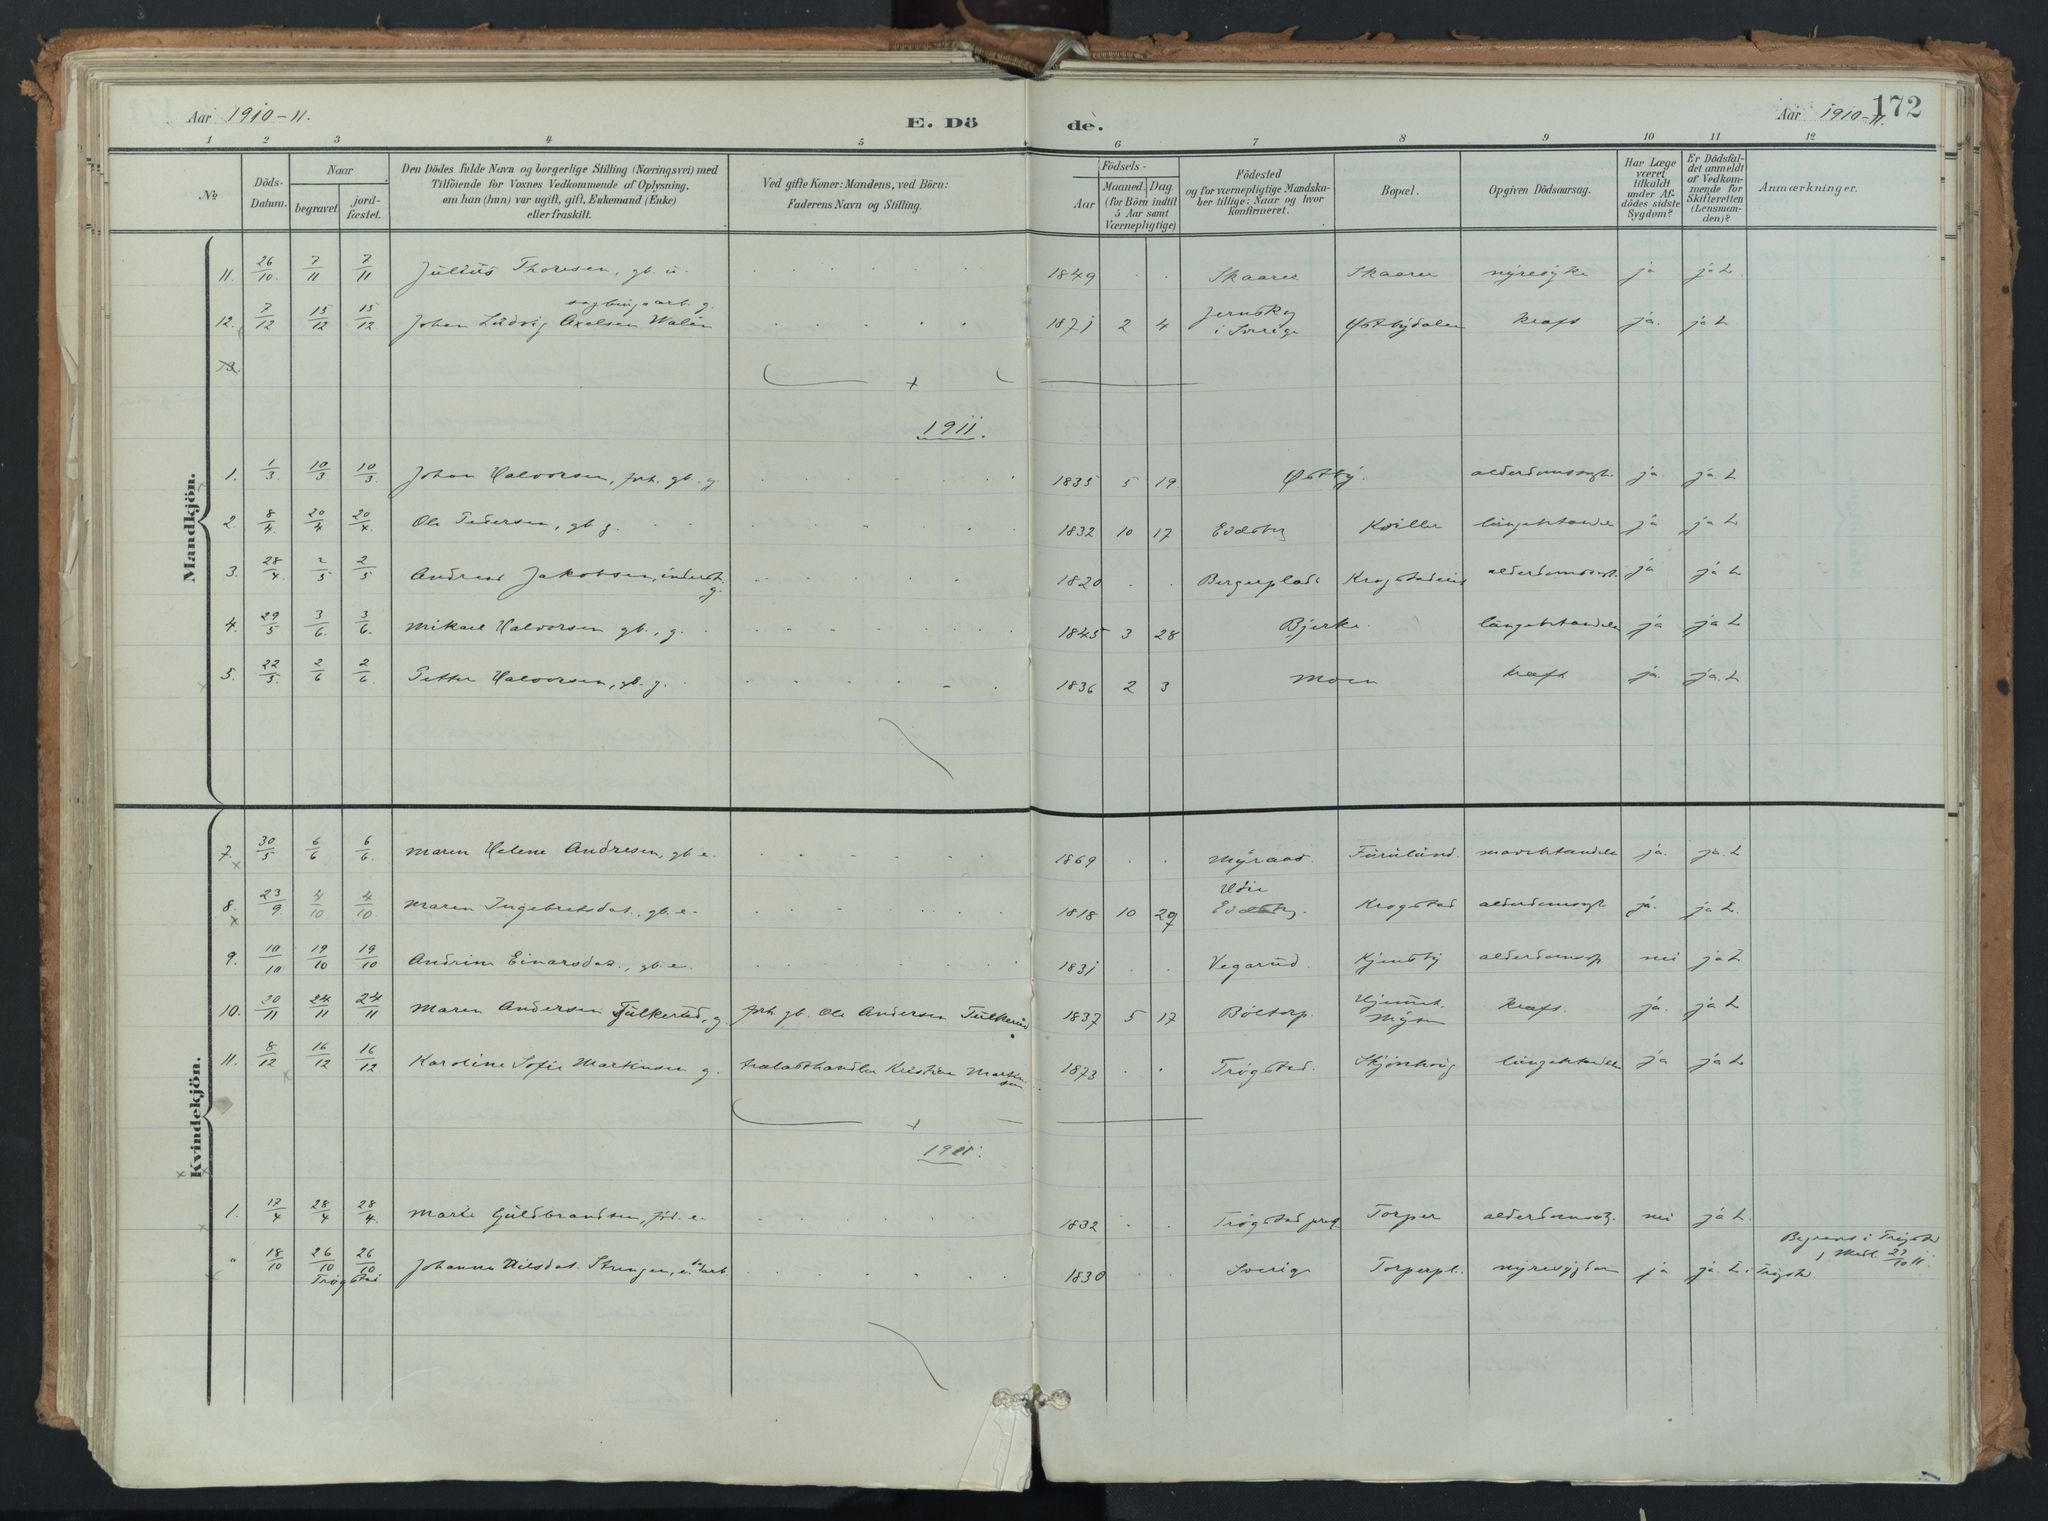 Aar 1910-11.
E. Dö
de.
Aar 1910-11.
172
1 2 3 4 5 6 7 8 9 10 11 12
No
Döds-Datum.
Naar
begravet.
jord-fæstet.
Den Dödes fulde Navn og borgerlige Stilling (Næringsvei) med
Tilföiende for Voxnes Vedkommende af Oplysning,
om han (hun) var ugift, gift, Enkemand (Enke)
eller fraskilt.
Ved gifte Koner: Mandens, ved Börn:
Faderens Navn og Stilling.
Födsels-
Aar
Maaned. Dag.
(for Börn indtil
5 Aar samt
Værnepligtige)
Födested
og for værnepligtige Mandska-
ber tillige: Naar og hvor
konfirmeret.
Bopæl.
Opgiven Dödsaarsag.
Har Læge
været
tilkaldt
under Af-
dödes sidste
Sygdom?
Er Dödsfal-
det anmeldt
af Vedkom-
mende for
Skifteretten
(Lensman-
den)?
Anmærkninger.
Mandkjön.
11. 26/10 7/11 7/11 Julius Thoresen, gb. u. 1849 Skaarer Skaarer nyresyke ja ja L.
sagbrugsarb. g.
12. 7/12 15/12 15/12 Johan Ludvig Axelsen Walen 1871 2 4 i Sverige Østbydalen kræft ja. ja L.
13.
1911.
1. 1/3 10/3 10/3 Johan Halvorsen, gb. g. 1835 5 19. Østby. ja. ja. L
2. 8/4 20/4 20/4 Ole Pedersen, gb g. 1832 10 17 Eidsberg lungebetændelse ja ja L
3. 28/4 2/5 2/5 Andreas Jakobsen, inderst, g. 1820 Bergerplads ja ja L
4. 29/5 3/6. 3/6. Mikael Halvorsen gb., g. 1845 3 28 Bjerke. lungebetændelse ja ja L
5. 22/5 2/6 2/6. Petter Halvorsen, gb. g. 1836 2 3 Moen kræft ja. ja. L
Kvindekjön.
7. 30/5 6/6 6/6. Maren Helene Andresen, gb e. 1869 Myraas. Furulund. ja. ja. L
8. 23/9. 4/10 4/10 Maren Ingebretsdat., gb. e. 1818 10 Krogstad ja. ja L.
9. 10/10 19/10 19/10 Andrine Einarsdat., gb. e. 1831 Vegarud. Kjensby nei ja L
10. 20/11 24/11 24/11 Maren Andersen Fulkerud, g. gb. Ole Andersen Fulkerud 1837 5 17 Böltorp. Mysen kræft. ja. ja L
11. 8/12 16/12 16/12 Karoline Sofie Martinsen g. trælasthandler Kristian Martinsen 1873 Trøgstad. lungebetændelse ja ja L
1911.
1. 17/4 28/4 28/4. Marie Guldbrandsen, e. 1832 Trøgstad Torper nei ja L.
" 18/10 26/10 26/10 Johanne Nilsdat. 1830 Sverige Torperpl. nyresygdom ja ja L i Trøgst.
Trøgstad
Begravet i Trøgst.